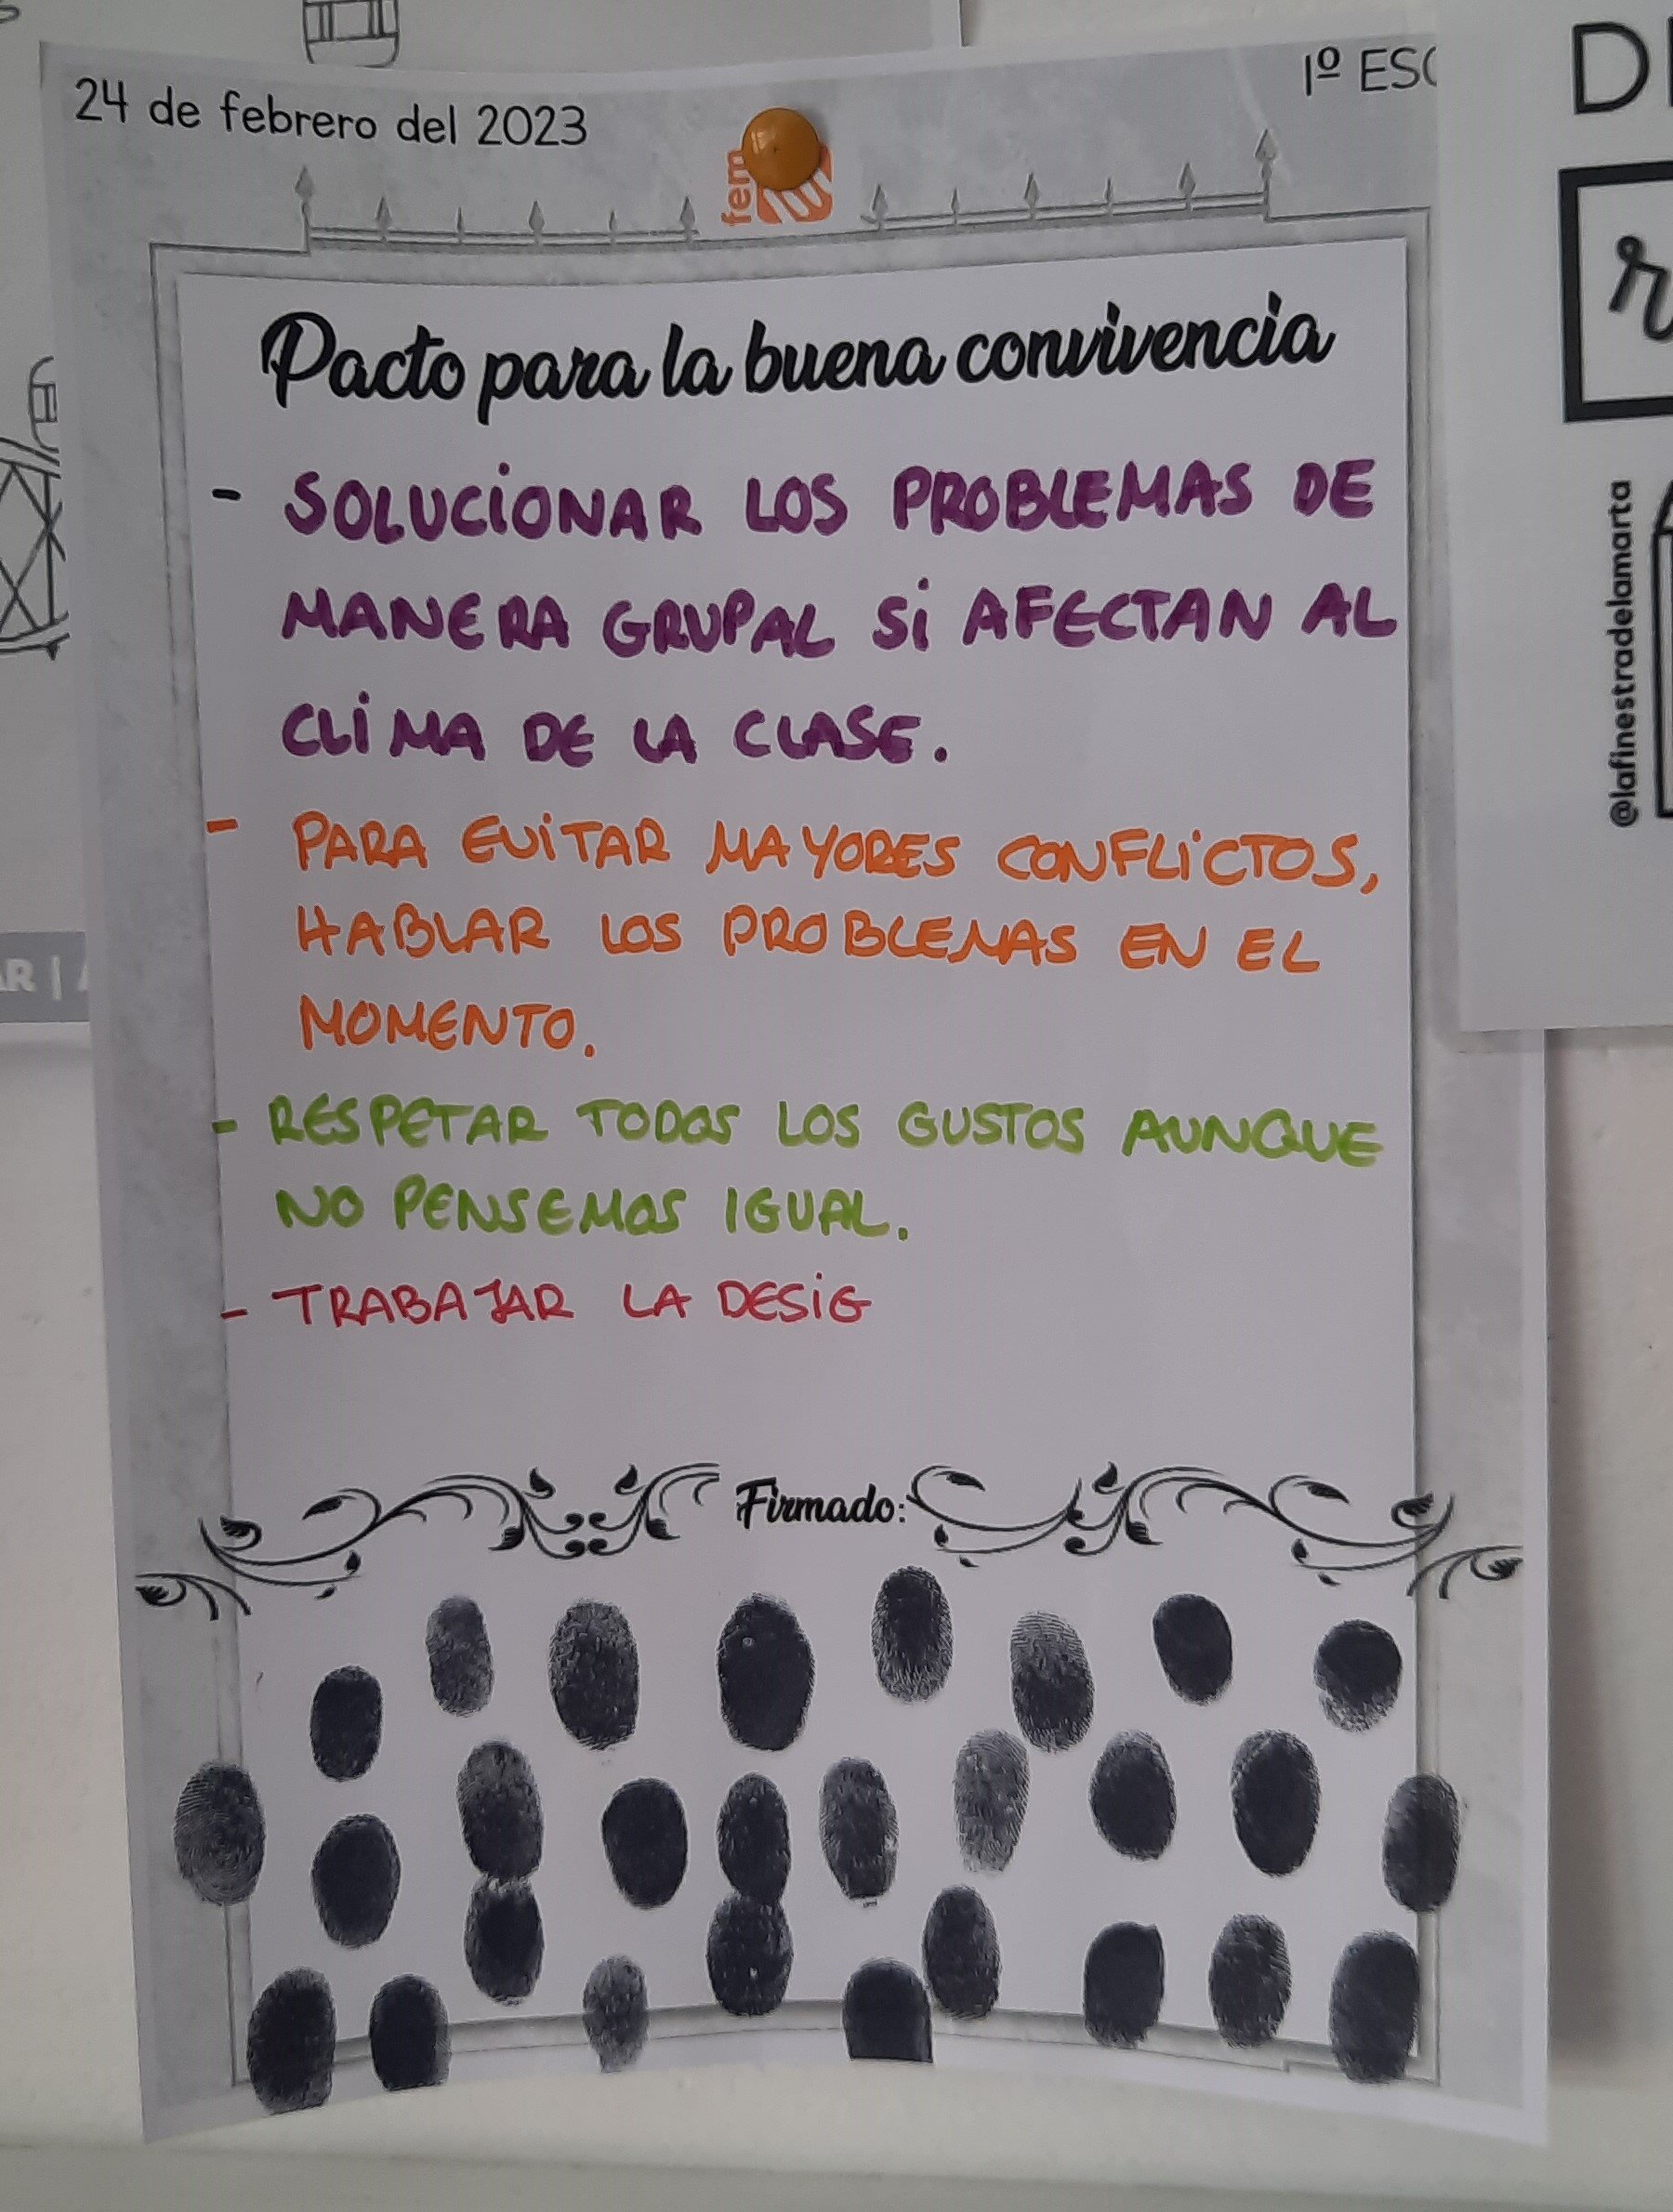 24 de febrero del 2023
1º ESO
fem
Pacto para la buena convivencia
- SOLUCIONAR LOS PROBLEMAS DE
MANERA GRUPAL SI AFECTAN AL
CLIMA DE LA CLASE.
- PARA EVITAR MAYORES CONFLICTOS,
HABLAR LOS PROBLEMAS EN EL
MOMENTO.
- RESPETAR TODOS LOS GUSTOS AUNQUE
NO PENSEMOS IGUAL.
- TRABAJAR LA DESIG
Firmado:
@lafinestradelamarta